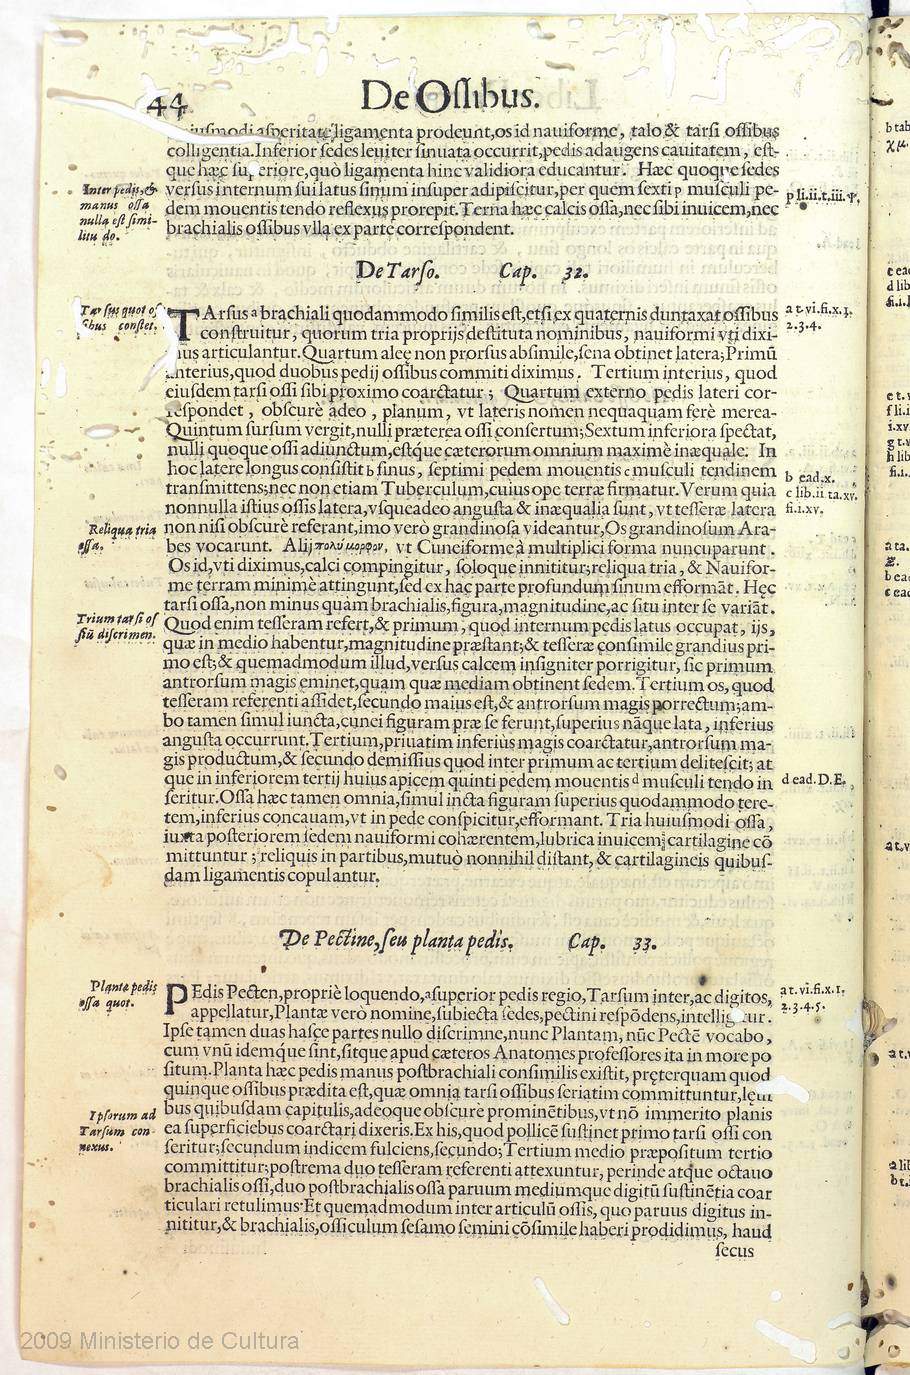 44
De Ossibus.
iusmodi asperitate ligamenta prodeunt, os id nauiforme, talo & tarsi ossibus
colligentia. Inferior sedes leuiter sinuata occurrit, pedis adaugens cauitatem, est-
que hæc superiore, quò ligamenta hinc validiora educantur. Hæc quoque sedes
versus internum sui latus sinum insuper adipiscitur, per quem sexti p musculi pe-
dem mouentis tendo reflexus prorepit. Terna hæc calcis ossa, nec sibi inuicem, nec
brachialis ossibus vlla ex parte correspondent.
Inter pedis, &
manus ossa
nulla est simi-
litu do.
p li.ii.t.iii.Ψ.
De Tarso. Cap. 32.
Tarsus quot os
sibus constet.
TArsus a brachiali quodammodo similis est, etsi ex quaternis duntaxat ossibus
construitur, quorum tria proprijs destituta nominibus, nauiformi vti dixi-
mus articulantur. Quartum aleę non prorsus absimile, sena obtinet latera; Primũ
anterius, quod duobus pedij ossibus commiti diximus. Tertium interius, quod
eiusdem tarsi ossi sibi proximo coarctatur; Quartum externo pedis lateri cor-
respondet, obscurè adeo, planum, vt lateris nomen nequaquam ferè merea-
Quintum sursum vergit, nulli præterea ossi consertum; Sextum inferiora spectat,
nulli quoque ossi adiunctum, estque cæterorum omnium maximè inæquale. In
hoc latere longus consistit b sinus, septimi pedem mouentis c musculi tendinem
transmittens; nec non etiam Tuberculum, cuius ope terræ firmatur. Verum quia
nonnulla istius ossis latera, vsqueadeo angusta & inæqualia sunt, vt tesseræ latera
non nisi obscurè referant, imo verò grandinosa videantur, Os grandinosum Ara-
bes vocarunt. Alij πολύμορφον, vt Cuneiforme à multiplici forma nuncuparunt.
Os id, vti diximus, calci compingitur, soloque innititur; reliqua tria, & Nauifor-
me terram minimè attingunt, sed ex hac parte profundum sinum efformãt. Hęc
tarsi ossa, non minus quàm brachialis, figura, magnitudine, ac situ inter se variãt.
Quod enim tesseram refert, & primum, quod internum pedis latus occupat, ijs,
quæ in medio habentur, magnitudine præstant; & tesseræ consimile grandius pri-
mo est; & quemadmodum illud, versus calcem insigniter porrigitur, sic primum
antrorsum magis eminet, quam quæ mediam obtinent sedem. Tertium os, quod
tesseram referenti assidet, secundo maius est, & antrorsum magis porrectum; am-
bo tamen simul iuncta, cunei figuram præ se ferunt, superius nãque lata, inferius
angusta occurrunt. Tertium, priuatim inferius magis coarctatur, antrorsum ma-
gis productum, & secundo demissius quod inter primum ac tertium delitescit; at
que in inferiorem tertij huius apicem quinti pedem mouentis d musculi tendo in
seritur. Ossa hæc tamen omnia, simul incta figuram superius quodammodo tere-
tem, inferius concauam, vt in pede conspicitur, efformant. Tria huiusmodi ossa,
iuxta posteriorem sedem nauiformi cohærentem, lubrica inuicem cartilagine cõ
mittuntur; reliquis in partibus, mutuò nonnihil distant, & cartilagineis quibus-
dam ligamentis copulantur.
Reliqua tria
ossa.
Trium tarsi os
siũ discrimen.
a t.vi.fi.x.1.
2.3.4.
b ead.x.
c lib.ii.ta.xv.
fi.i.xv.
d ead.D.E.
De Pectine, seu planta pedis. Cap. 33.
Plantæ pedis
ossa quot.
PEdis Pecten, propriè loquendo, a superior pedis regio, Tarsum inter, ac digitos,
appellatur, Plantæ verò nomine, subiecta sedes, pectini respõdens, intelligitur.
Ipse tamen duas hasce partes nullo discrimne, nunc Plantam, nũc Pectẽ vocabo,
cum vnũ idemque sint, sitque apud cæteros Anatomes professores ita in more po
situm. Planta hæc pedis manus postbrachiali consimilis existit, pręterquam quod
quinque ossibus prædita est, quæ omnia tarsi ossibus seriatim committuntur, leui
bus quibusdam capitulis, adeoque obscurè prominẽtibus, vt nõ immerito planis
ea superficiebus coarctari dixeris. Ex his, quod pollicẽ sustinet primo tarsi ossi con
seritur; secundum indicem fulciens, secundo; Tertium medio præpositum tertio
committitur; postrema duo tesseram referenti attexuntur, perinde atque octauo
brachialis ossi, duo postbrachialis ossa paruum mediumque digitũ sustinẽtia coar
ticulari retulimus. Et quemadmodum inter articulũ ossis, quo paruus digitus in-
nititur, & brachialis, ossiculum sesamo semini cõsimile haberi prodidimus, haud
secus
Ipsorum ad
Tarsum con-
nexus.
a t.vi.fi.x.1.
2.3.4.5.
2009 Ministerio de Cultura